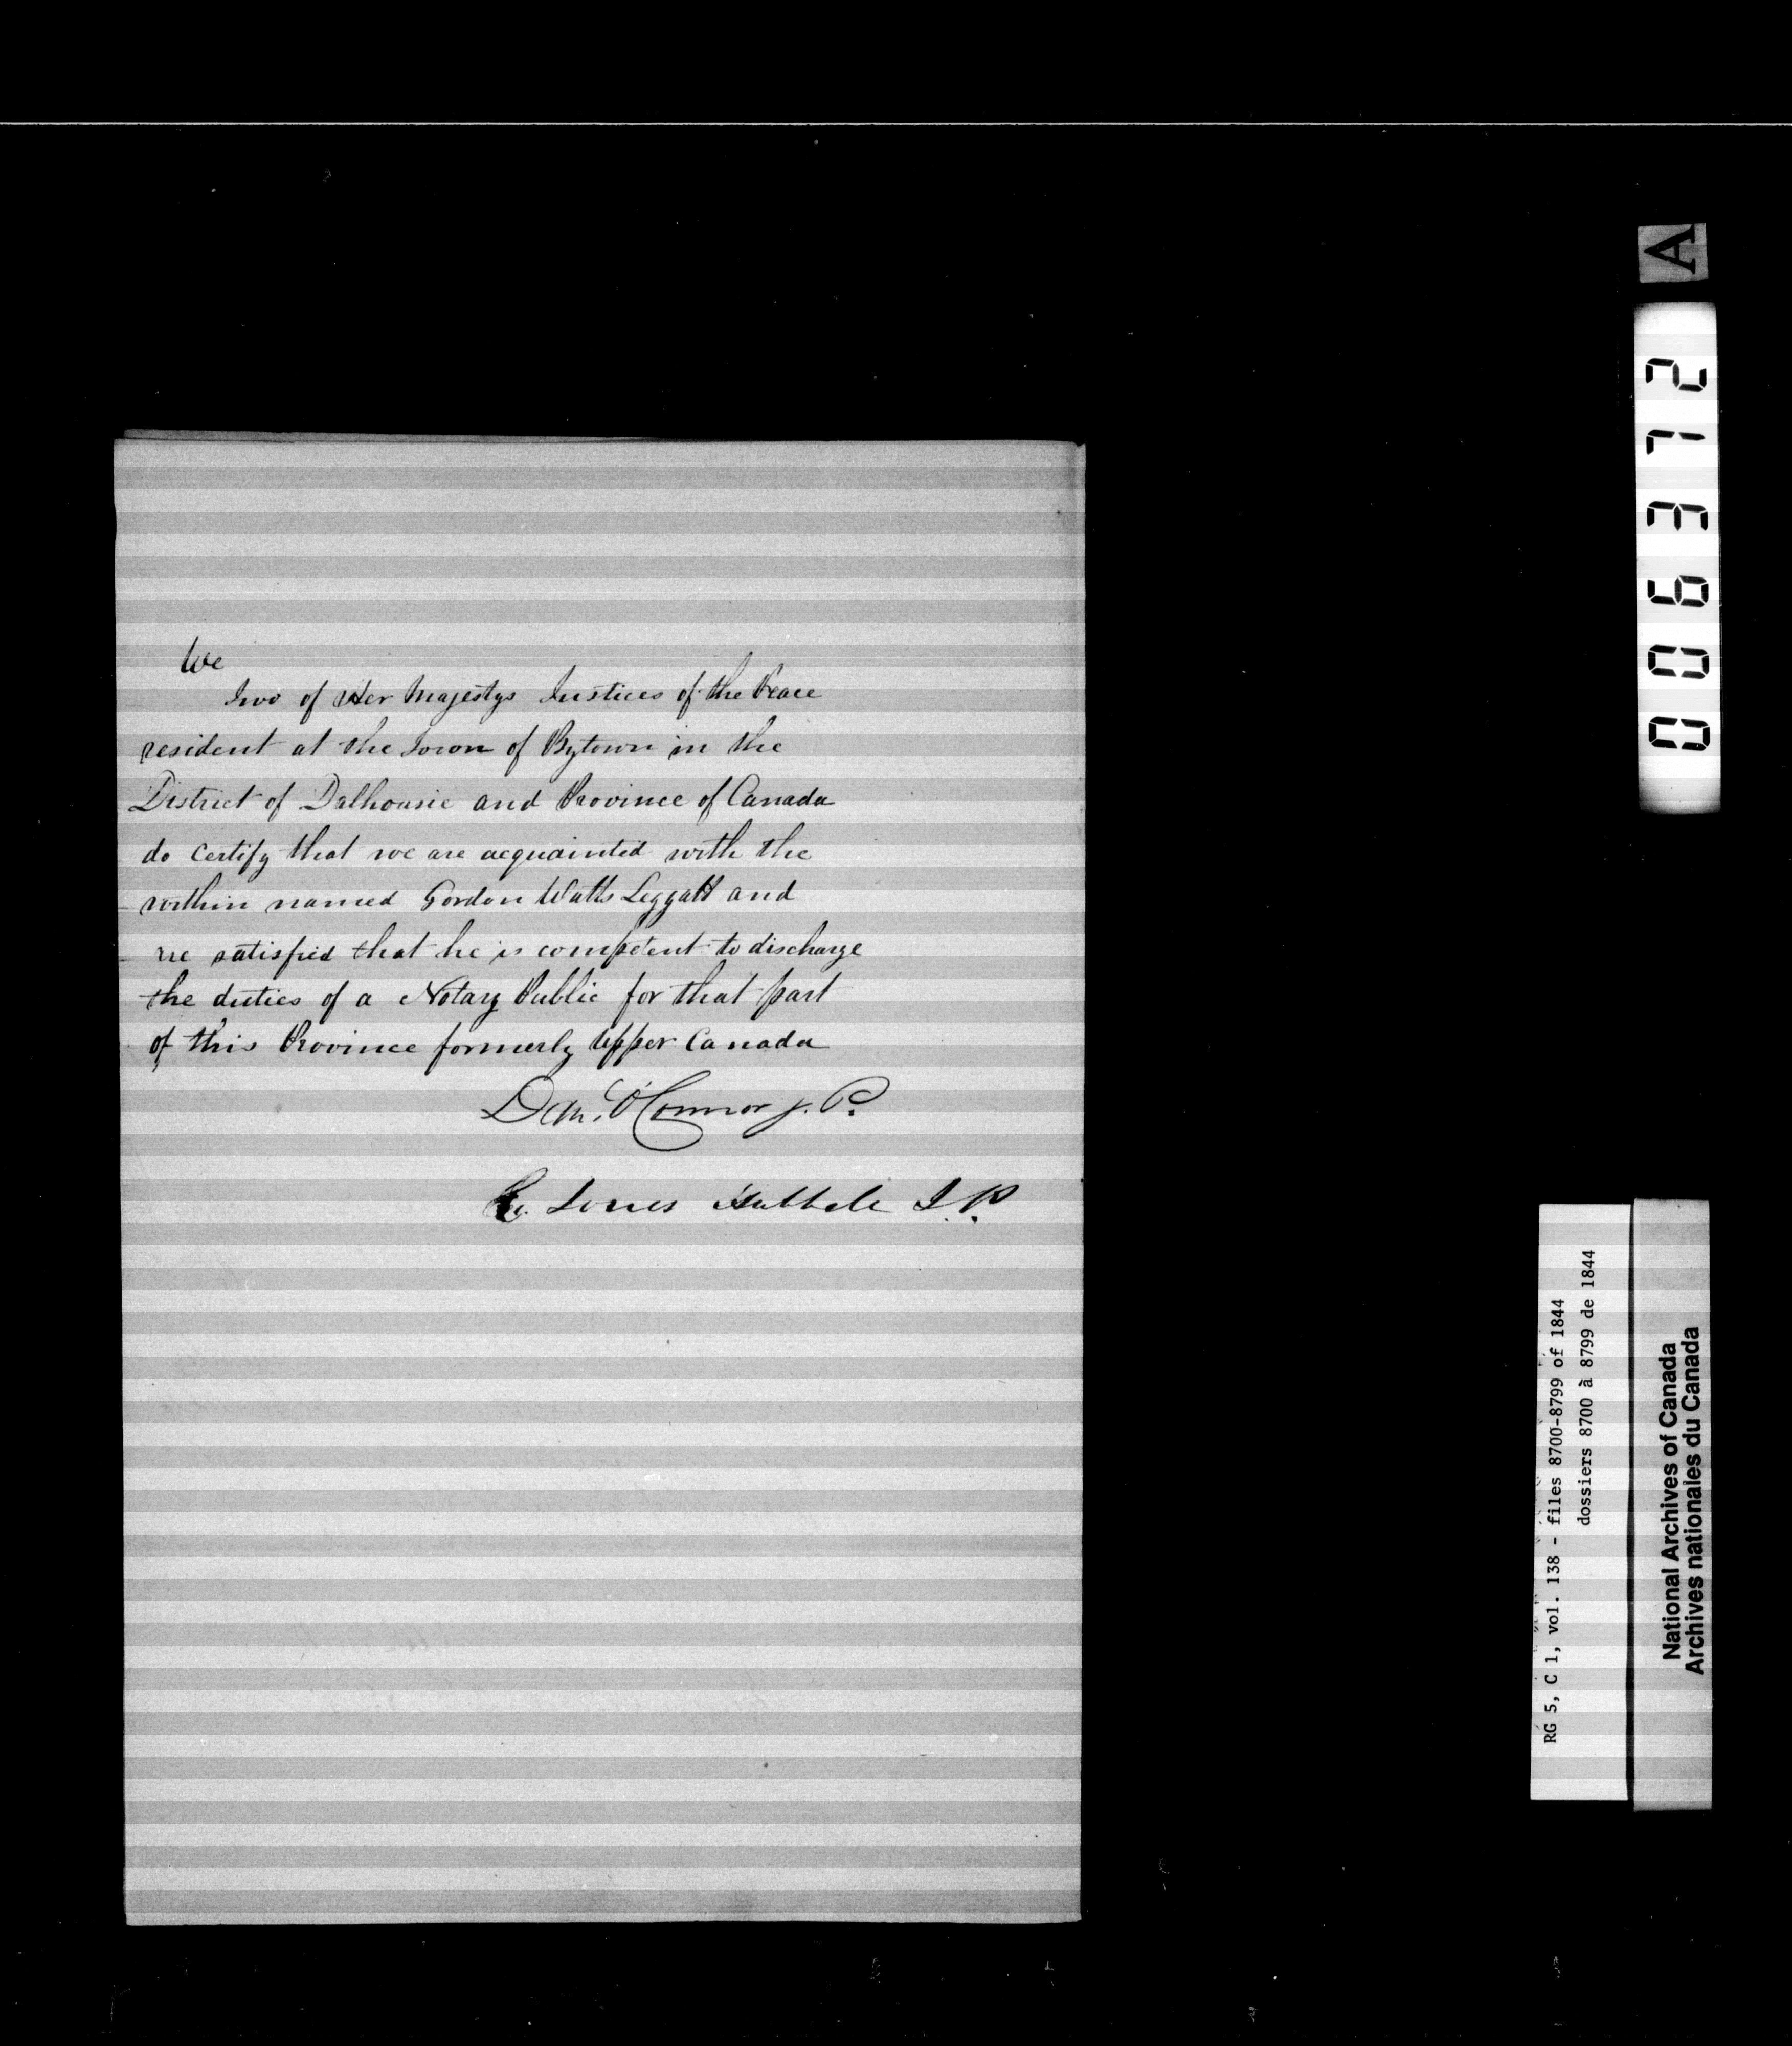 We
Two of Her Majestys Justices of the Peace
resident at the Town of Bytown in the
District of Dalhousie and Province of Canada
do Certify that we are acquainted with the
within named Gordon Watts Leggatt and
are satisfied that he is competent to discharge
the duties of a Notary Public for that part
of this Province formerly Upper Canada
Danl. O'Connor J. P.
Jones J.P.
A
006372
RG 5, C 1, vol. 138 - files 8700-8799 of 1844
dossiers 8700 à 8799 de 1844
National Archives of Canada
Archives nationales du Canada